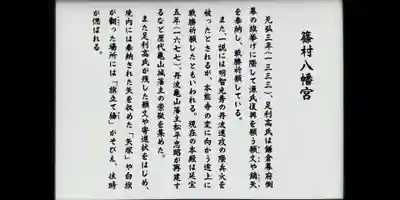 篠村八幡宮
元弘三年(一三三三)、足利高氏は鎌倉幕府倒
幕の旗挙げに際して源氏復興を願う願文や鏑矢
を奉納し、戦勝祈願している。
また、一説には明智光秀の丹波進攻の際兵火を
被ったとされるが、本能寺の変に向かう途上に
戦勝祈願したともいわれる。現在の本殿は延宝
五年(一六七七)、丹波亀山城藩主松平忠昭が再建す
るなど歴代亀山城藩主の崇敬を集めた。
また足利高氏が残した願文や寄進状をはじめ、
境内には奉納された矢を収めた「矢塚」や白旗
が翻った場所には「旗立て楊」がそびえ、往時
が偲ばれる。